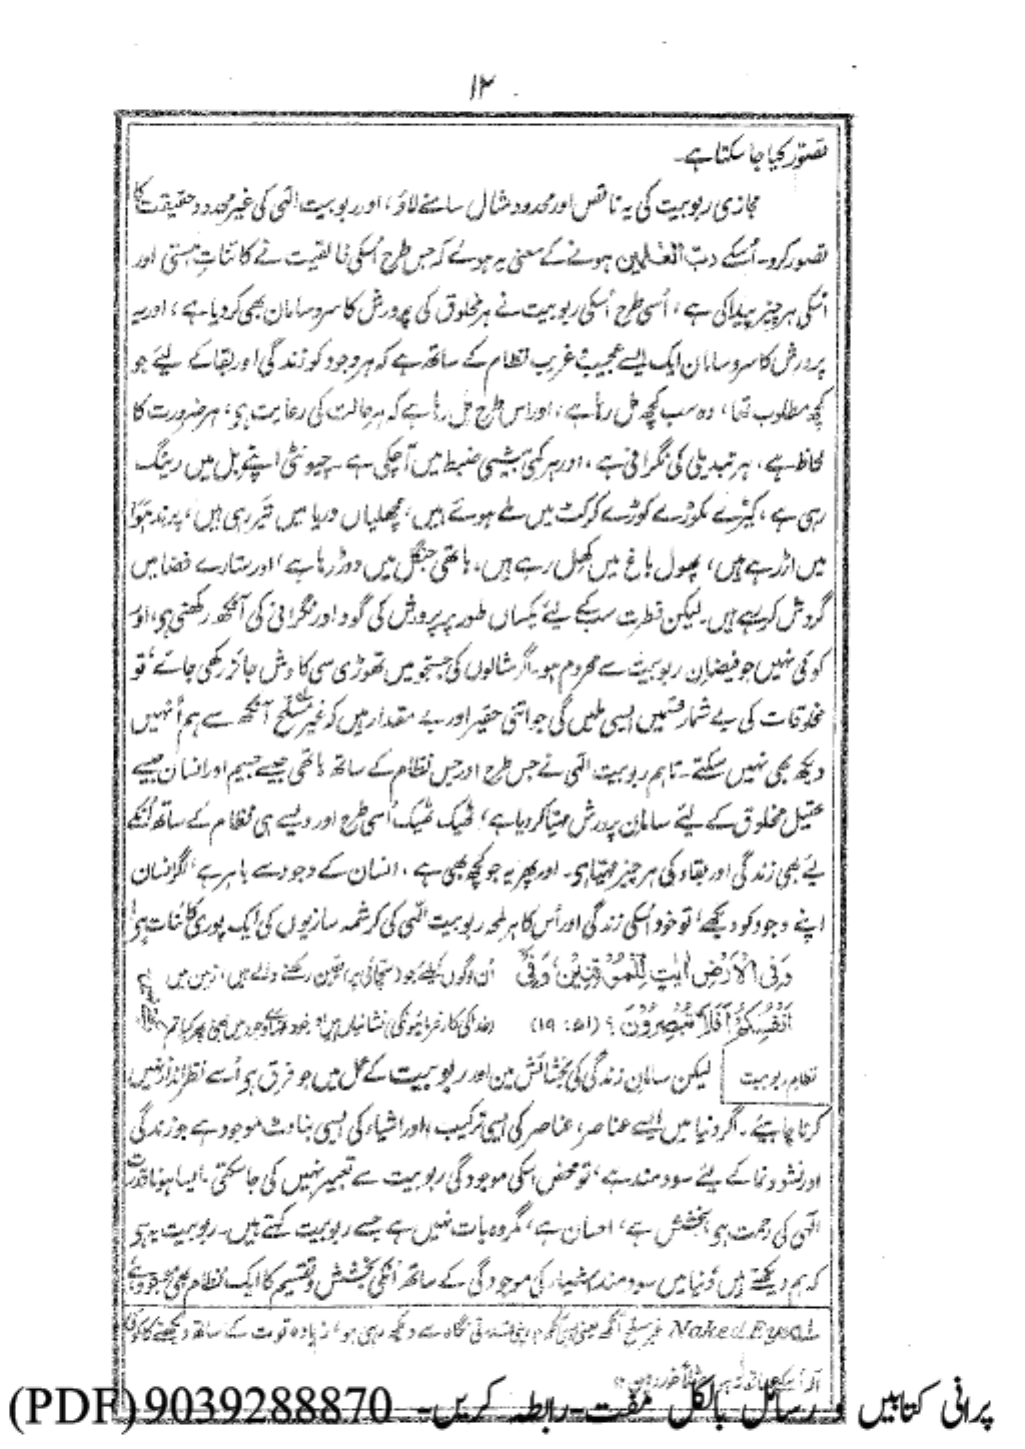 ۱۲
تصور کیا جا سکتا ہے۔
مجازی ربوبیت کی یہ ناقص اور محدود مثال سامنے لاؤ، اور ربوبیت الٰہی کی غیر محدود حقیقت کا
تصور کرو۔ اُسکے ربّ العٰلمین ہونے کے معنی یہ ہوئے کہ جس طرح اُسکی خالقیت نے کائناتِ ہستی اور
اُسکی ہر چیز پیدا کی ہے، اُسی طرح اُسکی ربوبیت نے ہر مخلوق کی پرورش کا سروسامان بھی کر دیا ہے، اور یہ
پرورش کا سروسامان ایک ایسے عجیب و غریب نظام کے ساتھ ہے کہ ہر وجود کو زندگی اور بقا کے لیئے جو
کچھ مطلوب تھا، وہ سب کچھ مل رہا ہے، اور اس طرح مل رہا ہے کہ ہر حالت کی رعایت ہے، ہر ضرورت کا
لحاظ ہے، ہر تبدیلی کی نگرانی ہے، اور ہر کمی بیشی ضبط میں آ چکی ہے۔ چیونٹی اپنے بل میں رینگ
رہی ہے، کیڑے مکوڑے کوڑے کرکٹ میں ملے ہوئے ہیں، مچھلیاں دریا میں تیر رہی ہیں، پرند ہوا
میں اڑ رہے ہیں، پھول باغ میں کھل رہے ہیں، ہاتھی جنگل میں دوڑ رہا ہے، اور ستارے فضا میں
گردش کر رہے ہیں۔ لیکن فطرت سب کے لیئے یکساں طور پر پرورش کی گود اور نگرانی کی آنکھ رکھتی ہے، اور
کوئی نہیں جو فیضانِ ربوبیت سے محروم ہو۔ اگر مثالوں کی جستجو میں تھوڑی سی کاوش جائز رکھی جائے، تو
مخلوقات کی بے شمار قسمیں ایسی ملیں گی جو اتنی حقیر اور بے مقدار ہیں کہ غیر مسلح آنکھ سے ہم اُنہیں
دیکھ بھی نہیں سکتے۔ تاہم ربوبیت الٰہی نے جس طرح اور جس نظام کے ساتھ ہاتھی جیسے جسیم اور انسان جیسے
عقیل مخلوق کے لیئے سامانِ پرورش مہیا کر دیا ہے، ٹھیک ٹھیک اُسی طرح اور ویسے ہی نظام کے ساتھ اُنکے
لیے بھی زندگی اور بقاء کی ہر چیز مہیا ہے۔ اور پھر یہ جو کچھ بھی ہے، انسان کے وجود سے باہر ہے، اگر انسان
اپنے وجود کو دیکھے، تو خود اُسکی زندگی اور اُس کا ہر لمحہ ربوبیت الٰہی کی کرشمہ سازیوں کی ایک پوری کائنات ہے
وَفِی الْاَرْضِ اٰیٰتٌ لِّلْمُوْقِنِیْنَ، وَفِیْ اُن لوگوں کیلئے جو سچائی پر یقین رکھنے والے ہیں، زمین میں
اَنْفُسِکُمْ اَفَلَا تُبْصِرُوْنَ؟ (۵۱: ۱۹) (خدا کی کارفرمائیوں کی) نشانیاں ہیں، اور خود تمہارے وجود میں بھی، پھر کیا تم
نظامِ ربوبیت
لیکن سامانِ زندگی کی بخشائش میں اور ربوبیت کے عمل میں جو فرق ہے اُسے نظرانداز نہیں
کرنا چاہیئے۔ اگر دنیا میں ایسے عناصر، عناصر کی ایسی ترکیب، اور اشیاء کی ایسی بناوٹ موجود ہے جو زندگی
اور نشوونما کے لیئے سودمند ہے، تو محض اسکی موجودگی ربوبیت سے تعبیر نہیں کی جا سکتی۔ ایسا ہونا قدرت
الٰہی کی رحمت ہے، بخشش ہے، احسان ہے، مگر وہ بات نہیں ہے جسے ربوبیت کہتے ہیں۔ ربوبیت یہ ہے
کہ ہم دیکھتے ہیں دُنیا میں سودمند اشیاء کی موجودگی کے ساتھ اُنکی بخشش و تقسیم کا ایک نظام بھی موجود ہے
Naked Eye غیر مسلح آنکھ یعنی ایسی آنکھ جو اپنی قدرتی نگاہ سے دیکھ رہی ہو، زیادہ قوت کے ساتھ دیکھنے کا کوئی
پرانی کتابیں و رسائل بالکل مفت۔ رابطہ کریں۔ 9039288870 (PDF)